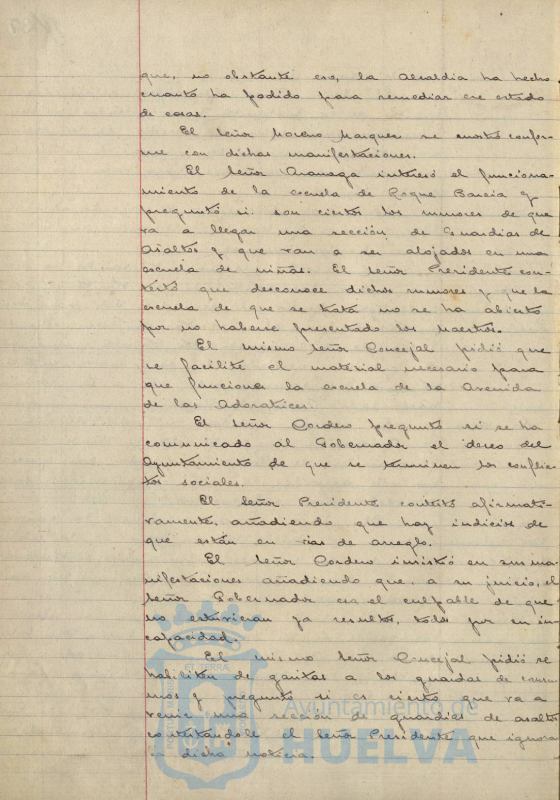 que, no obstante eso, la Alcaldia ha hecho
cuanto ha podido para remediar ese estado
de cosas.
El Señor Moreno Marquez se mostró confor-
me con dichas manifestaciones.
El Señor Aranaga interesó el funciona-
miento de la escuela de Roque Barcia y
preguntó si son ciertos los rumores de que
va a llegar una sección de Guardias de
Asaltos y que van a ser alojados en una
escuela de niñas. El Señor Presidente con-
testó que desconoce dichos rumores y que la
escuela de que se trata no se ha abierto
por no haberse presentado los Maestros.
El mismo Señor Concejal pidió que
se facilite el material necesario para
que funcione la escuela de la Avenida
de las Adoratrices.
El Señor Cordero preguntó si se ha
comunicado al Gobernador el deseo del
Ayuntamiento de que se terminen los conflic-
tos sociales.
El Señor Presidente contestó afirmati-
vamente, añadiendo que hay indicios de
que están en vias de arreglo.
El Señor Cordero insistió en sus ma-
nifestaciones añadiendo que, a su juicio, el
Señor Gobernador era el culpable de que
no estuvieran ya resueltos, todo por su in-
capacidad.
El mismo Señor Concejal pidió se
habiliten de garitas a los guardas de consu-
mos y preguntó si es cierto que va a
venir una sección de guardias de asaltos
contestándole el Señor Presidente que ignora-
ba dicha noticia.
Ayuntamiento de
HUELVA